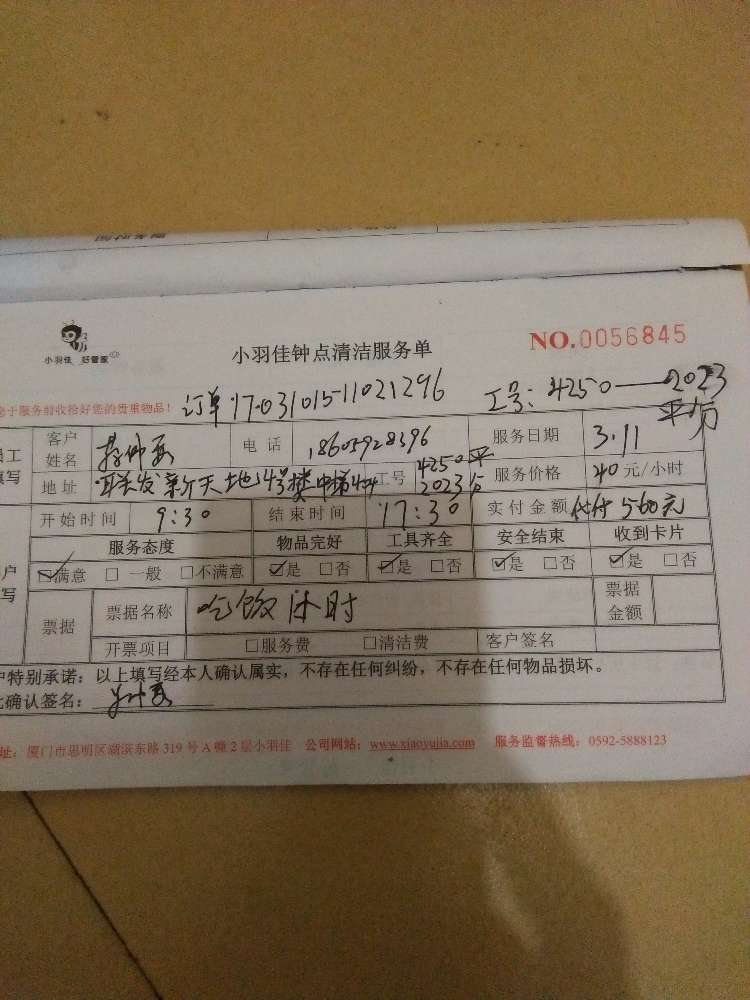 小羽佳 好管家
小羽佳钟点清洁服务单
NO.0056845
于服务前收拾好您的贵重物品!
订单17031015-11021296
工号:4250——2023
平分
员工
填写
客户姓名 电话 18603928396 服务日期 3.11
地址 新天地 号楼 工号 4250平 2023分 服务价格 40元/小时
开始时间 9:30 结束时间 17:30 实付金额 560元
服务态度 物品完好 工具齐全 安全结束 收到卡片
户
写
☑满意 □一般 □不满意 ☑是 □否 ☑是 □否 ☑是 □否 ☑是 □否
票据 票据名称 吃饭 时 票据金额
开票项目 □服务费 □清洁费 客户签名
户特别承诺:以上填写经本人确认属实,不存在任何纠纷,不存在任何物品损坏。
确认签名:
址:厦门市思明区湖滨东路319号A幢2层小羽佳 公司网站:www.xiaoyujia.com 服务监督热线:0592-5888123